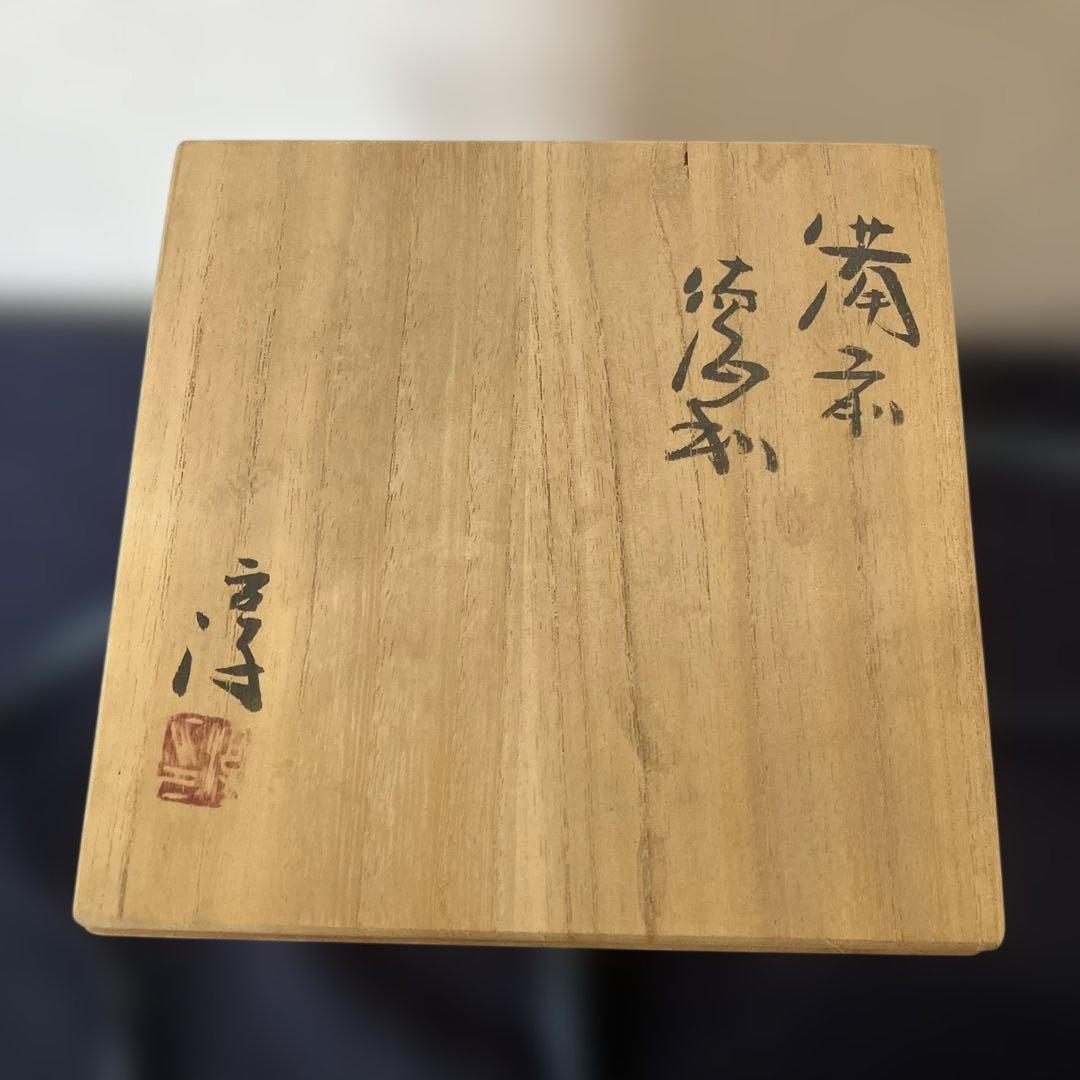 備前
徳利
淳